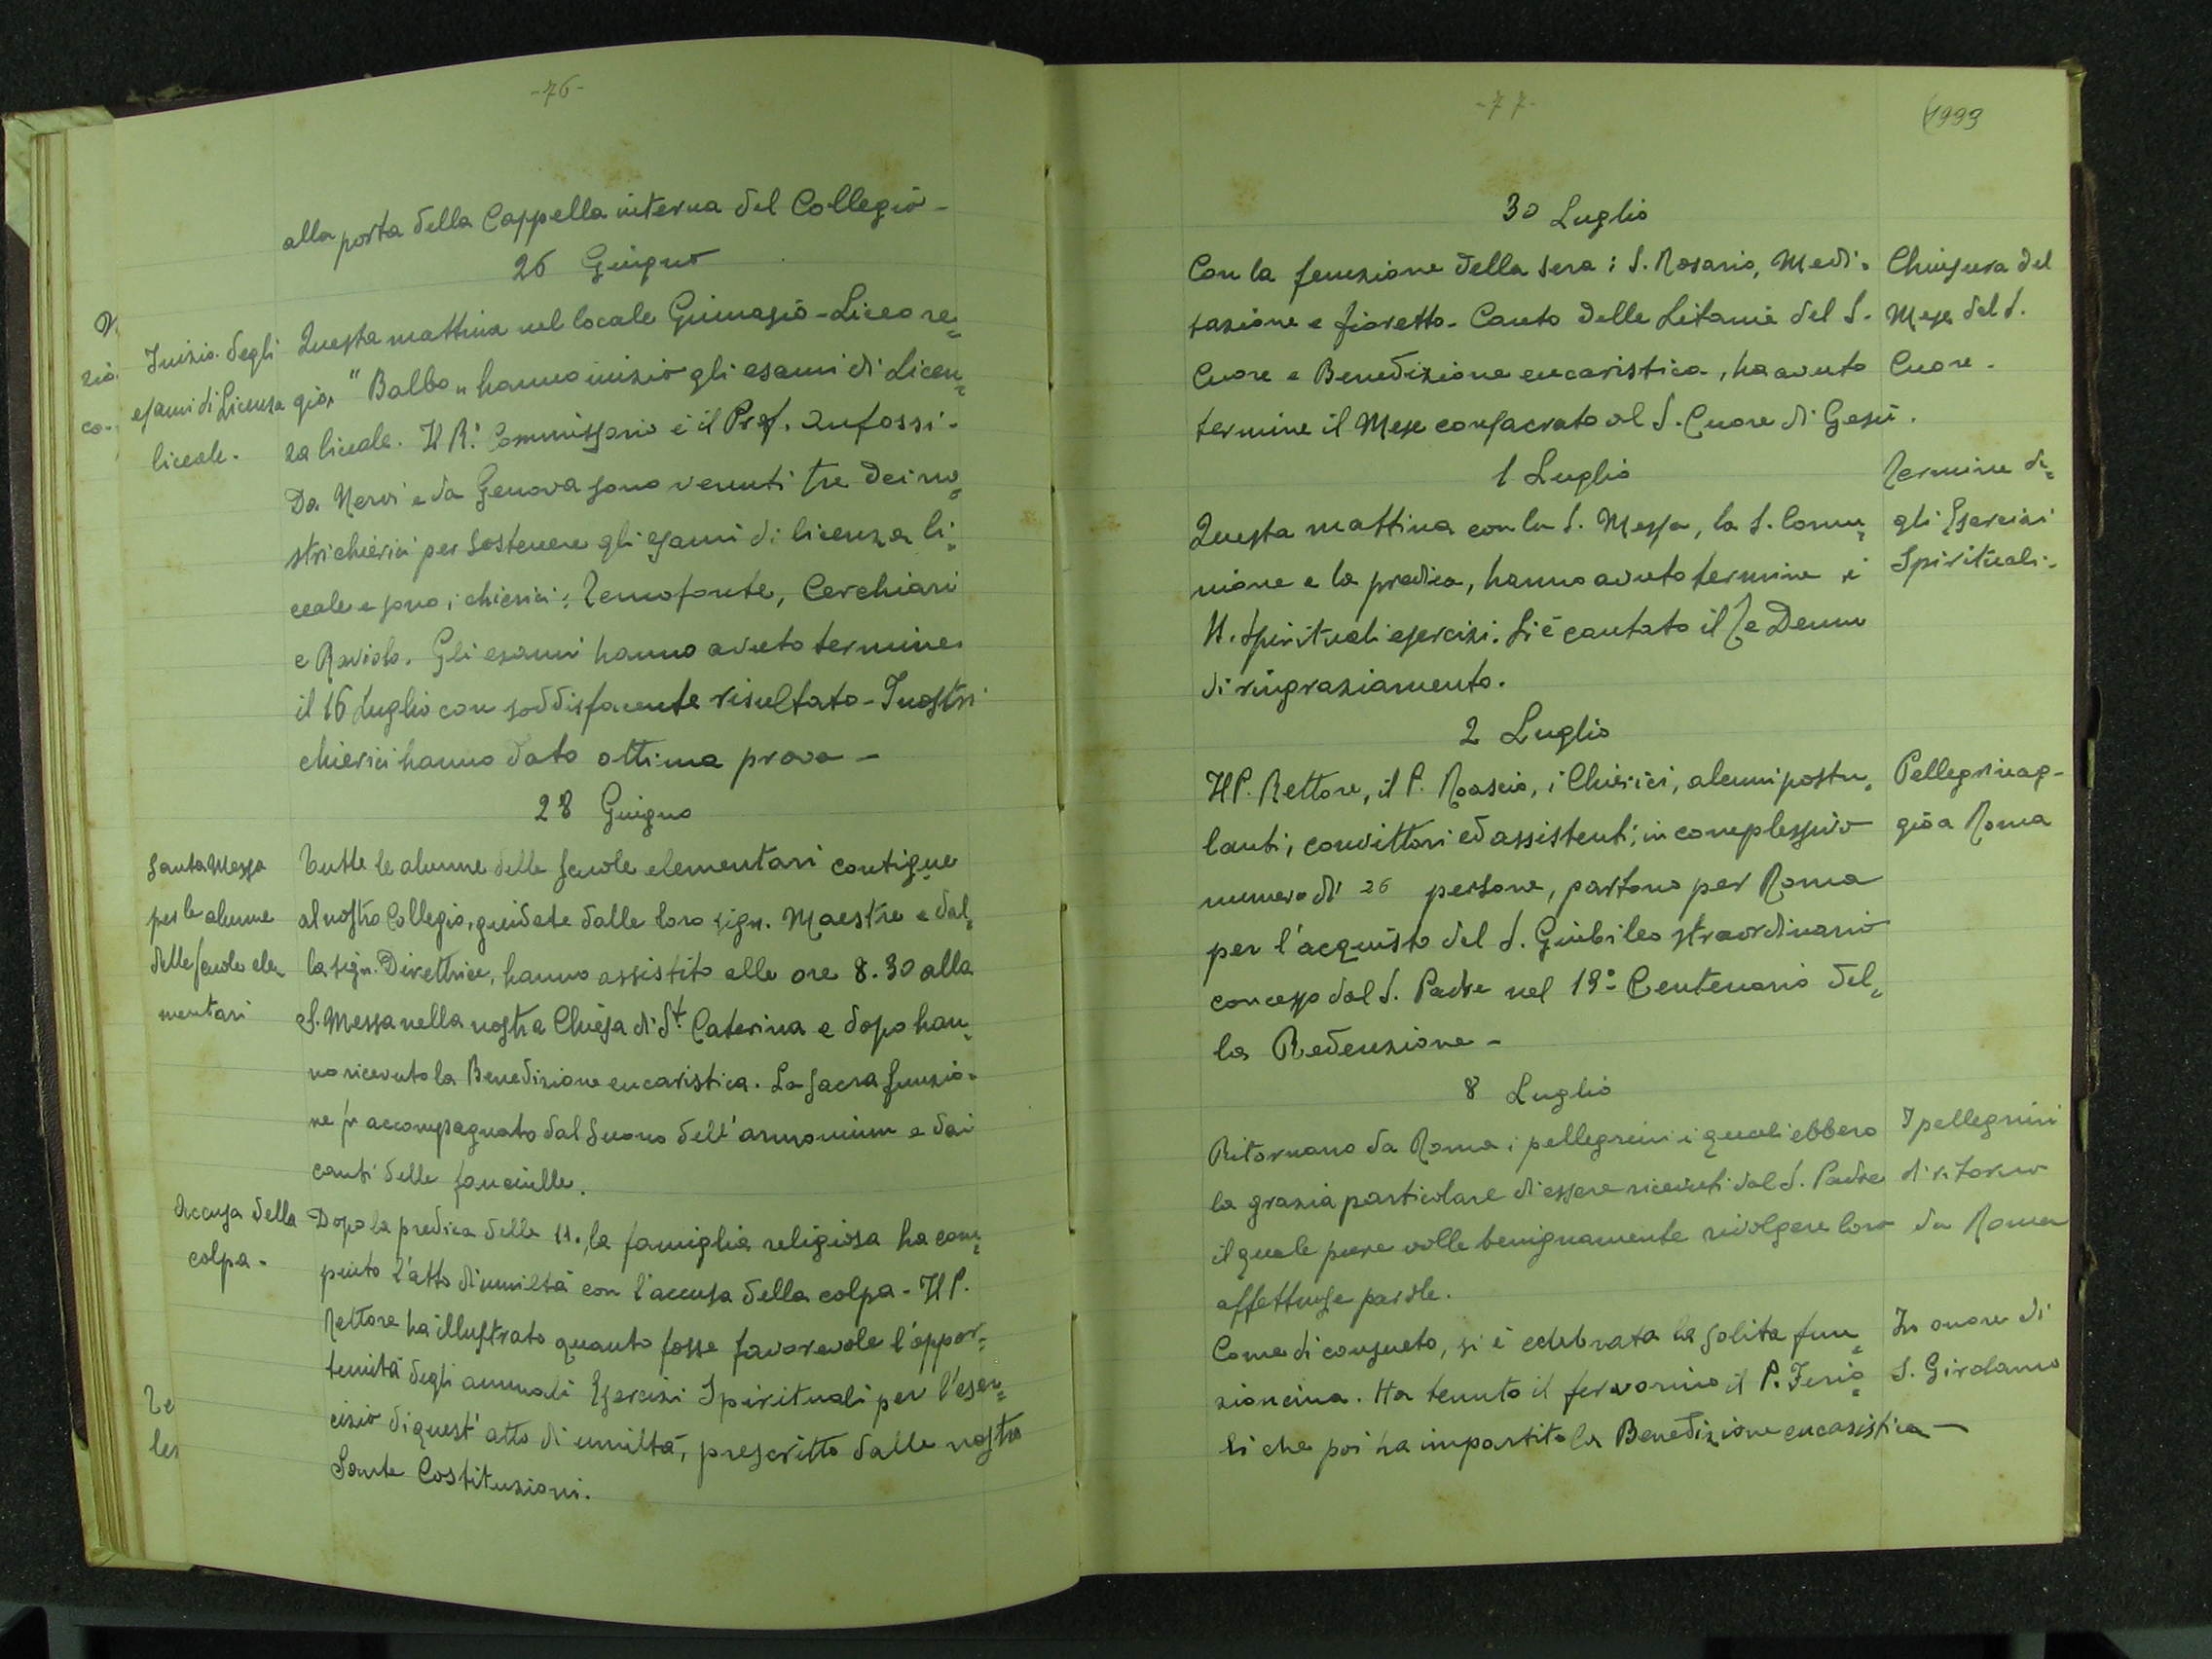 -76-
alla porta della Cappella interna del Collegio-
26 Giugno
Inizio degli
esami di Licenza
liceale.
Questa mattina nel locale Ginnasio-Liceo re=
gio, "Balbo" hanno inizio gli esami di Licen=
za liceale. Il R. Commissario è il Prof. Anfossi.
Da Nervi e da Genova sono venuti tre dei no=
stri chierici per sostenere gli esami di licenza li=
ceale e sono i chierici: Temofonte, Cerchiari
e Raviolo. Gli esami hanno avuto termine
il 16 Luglio con soddisfacente risultato - I nostri
chierici hanno dato ottima prova -
28 Giugno
Santa Messa
per le alunne
delle scuole ele
mentari
Tutte le alunne delle scuole elementari contigue
al nostro Collegio, guidate dalle loro sign. Maestre e dal=
la sign. Direttrice, hanno assistito alle ore 8.30 alla
S. Messa nella nostra Chiesa di St. Caterina e dopo han=
no ricevuto la Benedizione eucaristica. La sacra funzio=
ne fu accompagnata dal suono dell'armonium e dai
canti delle fanciulle.
Accusa della
colpa-
Dopo la predica delle 11, la famiglia religiosa ha com=
piuto l'atto di umiltà con l'accusa della colpa - Il P.
Rettore ha illustrato quanto fosse favorevole l'oppor=
tunità degli annuali Esercizi Spirituali per l'eser=
cizio di quest'atto di umiltà, prescritto dalle nostre
Sante Costituzioni.
-77-
1999
30 Luglio
Con la funzione della sera: S. Rosario, Medi=
tazione e fioretto - Canto delle Litanie del S.
Cuore e Benedizione eucaristica, ha avuto
termine il Mese consacrato al S. Cuore di Gesù.
Chiusura del
Mese del S.
Cuore-
1 Luglio
Questa mattina con la S. Messa, la S. Comu=
nione e la predica, hanno avuto termine i
SS. Spirituali esercizi. Si è cantato il Te Deum
di ringraziamento.
Termine de=
gli Esercizi
Spirituali-
2 Luglio
Il P. Rettore, il P. Roascio, i Chierici, alcuni postu=
lanti, convittori ed assistenti, in complessivo
numero di 26 persone, partono per Roma
per l'acquisto del S. Giubileo straordinario
concesso dal S. Padre nel 19° Centenario del=
la Redenzione-
Pellegrinag-
gio a Roma
8 Luglio
Ritornano da Roma i pellegrini i quali ebbero
la grazia particolare di essere ricevuti dal S. Padre
il quale pure volle benignamente rivolgere loro
affettuose parole.
I pellegrini
di ritorno
da Roma
Come di consueto, si è celebrata la solita fun=
zioncina. Ha tenuto il fervorino il P. Ferio=
li che poi ha impartito la Benedizione eucaristica-
In onore di
S. Girolamo